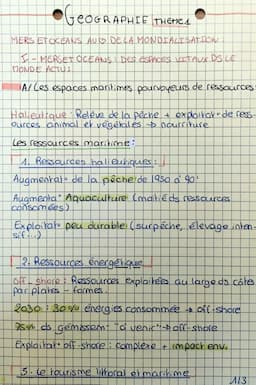 GEOGRAPHIE THEME 1
MERS ET OCEANS AU DE LA MONDIALISATION
I - MERS ET OCEANS : DES ESPACES VITAUX DS LE
MONDE ACTUEL
A/ Les espaces maritimes pourvoyeurs de ressources
Halieutique : Relève de la pêche + exploitat° de ress-
ources animal et végétales → nourriture
Les ressources maritime :
1. Ressources halieutiques :
Augmentat° de la pêche de 1950 à 90'
Augmenta° Aquaculture (moitié ds ressources
consommées)
Exploitat° peu durable (surpêche, élevage inten-
sif...)
2. Ressources énergetique
Off-shore : Ressources exploitées au large ds côtes
par plates-formes.
2030 : 30% énergies consommée → off-shore
75% ds gémessemt "à venir" → off-shore
Exploitat° off-shore : complexe + impact env.
3 - Le tourisme littoral et maritime
1/3